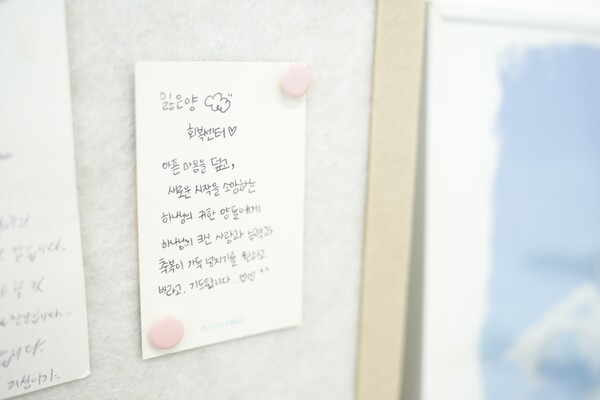 잃은양
회복센터♡
아픈 마음을 덮고,
새로운 시작을 소망하는
하나님의 귀한 양들에게
하나님의 크신 사랑과 능력과
축복이 가득 넘치기를 원하고,
바라고, 기도합니다. ♡♡ ^^
습니다.